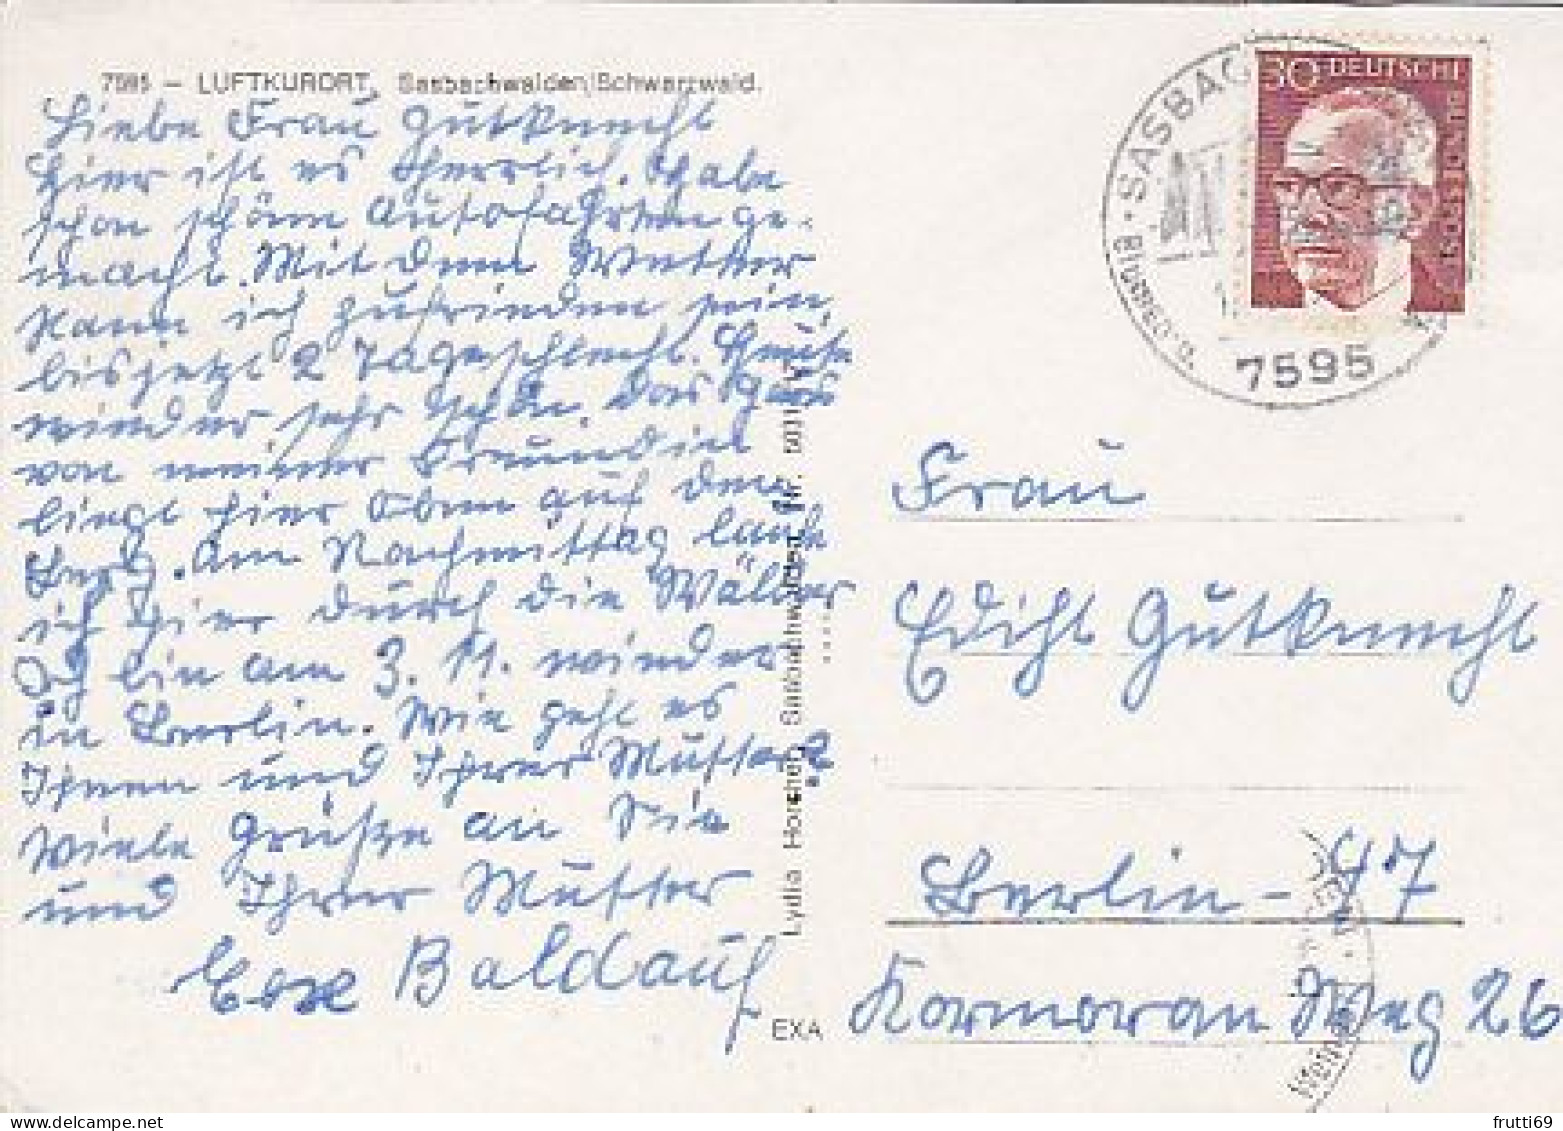 7595 – LUFTKURORT, Sasbachwalden/Schwarzwald.
Liebe Frau Gutknecht
Hier ist es herrlich. Habe
schon schöne Autofahrten ge-
macht. Mit dem Wetter
kann ich zufrieden sein,
bis jetzt 2 Tage schlecht. Heute
wieder sehr schön. Das Haus
von meiner Freundin
liegt hier oben auf dem
Berg. Am Nachmittag laufe
ich hier durch die Wälder
Ich bin am 3. 11. wieder
in Berlin. Wie geht es
Ihnen und Ihrer Mutter?
Viele Grüße an Sie
und Ihrer Mutter
Baldauf
Lydia Horcher, Sasbachwalden, Nr.
EXA
SASBAC
Blumen- u.
7595
30 DEUTSCHE BUNDESPOST
Frau
Edith Gutknecht
Berlin - 47
Kormoran Weg 26
frutti69